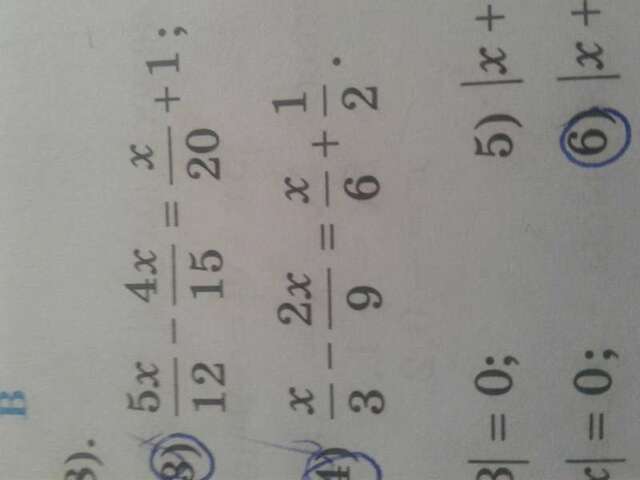 B
3).
3) 5x/12 − 4x/15 = x/20 + 1;
4) x/3 − 2x/9 = x/6 + 1/2.
3| = 0; 5) |x +
x| = 0; 6) |x +